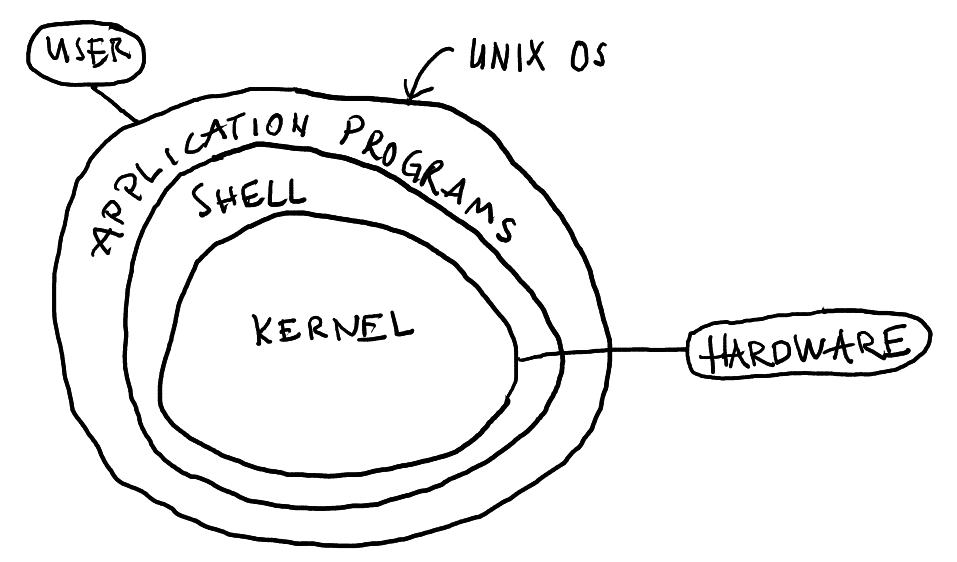 USER
UNIX OS
APPLICATION PROGRAMS
SHELL
KERNEL
HARDWARE